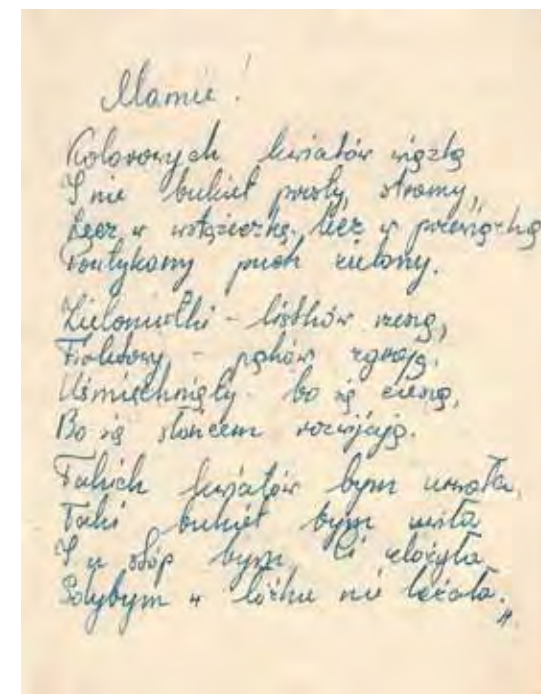 Mamie!
Kolorowych kwiatów wiązkę
I nie bukiet prosty, stromy,
Lecz w wstążeczkę, lecz w przewiązkę
Powtykany puch zielony.
Zieloniutki - listków rzęsą,
Fioletowy - pąków zgrają,
Uśmiechnięty - bo się cieszą,
Bo się słońcem rozwijają.
Takich kwiatów bym urwała,
Taki bukiet bym uwiła
I u stóp bym Ci złożyła
Gdybym w łóżku nie leżała.